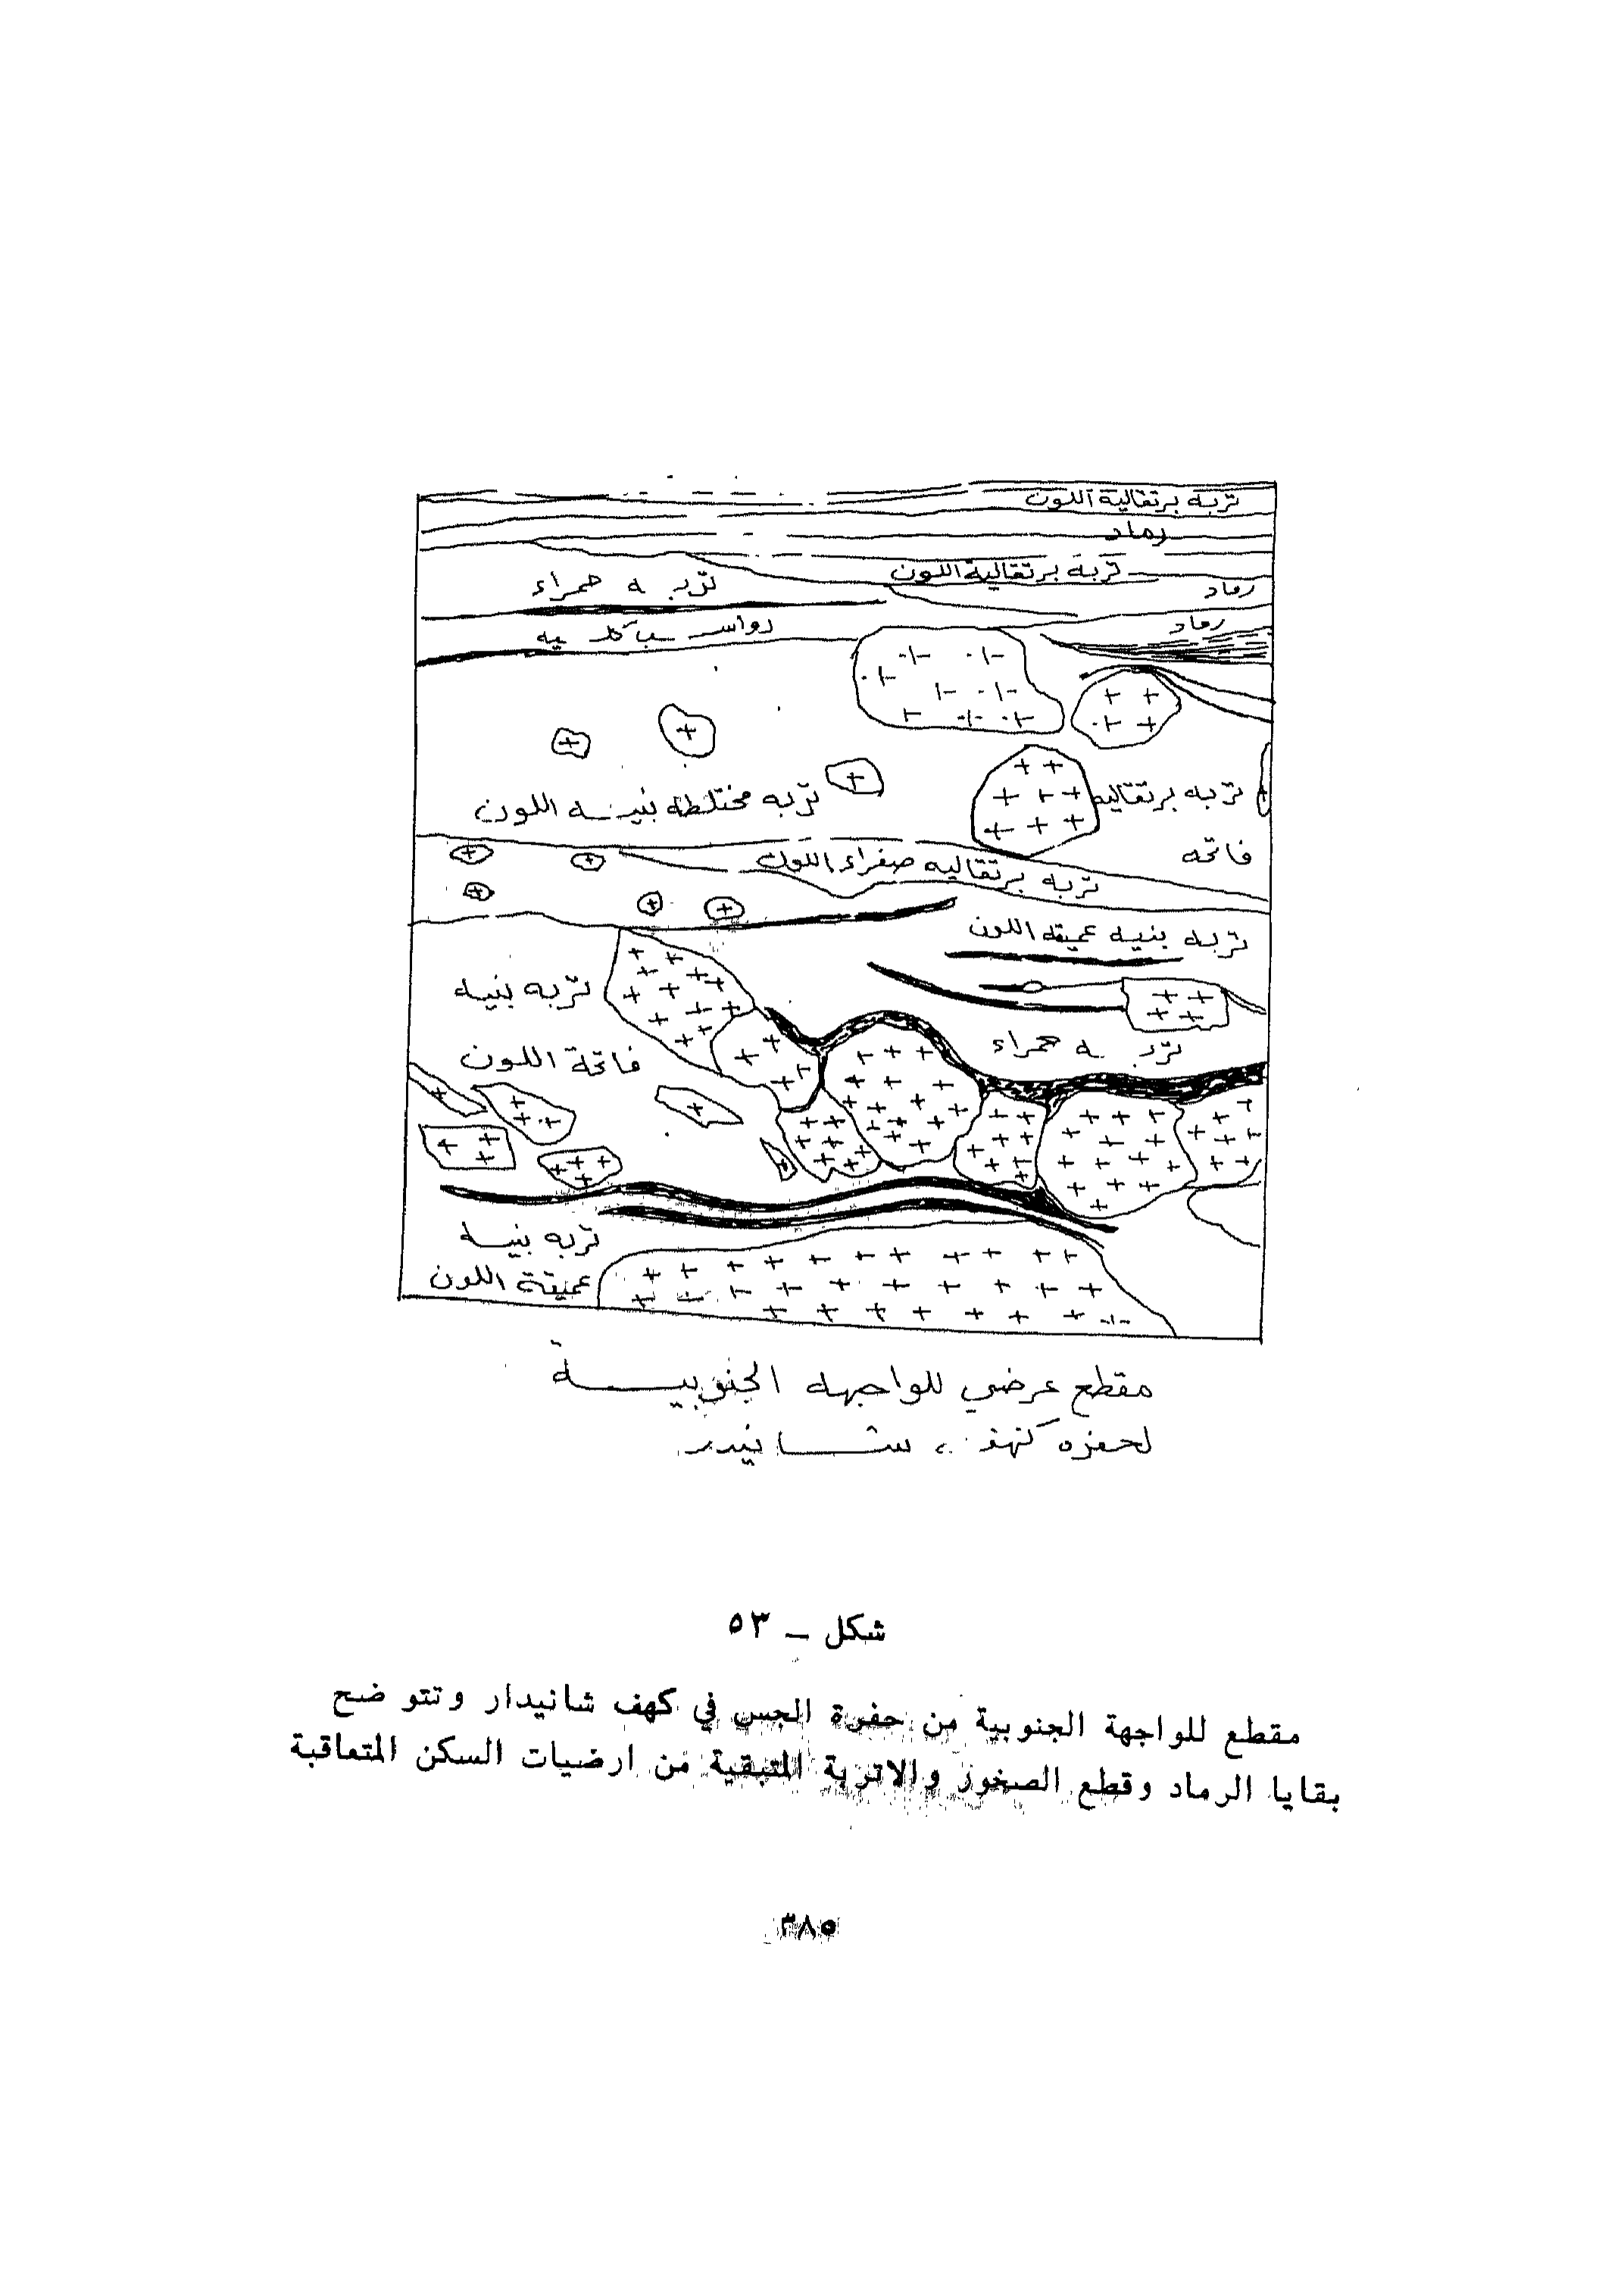 تربه برتقالية اللون
رماد
تربه برتقالية اللون
تربـ ـه حمراء
رماد
رواسب كلسيه
رماد
تربه مختلطه بنيـه اللون
تربه برتقاليه
فاتحه
تربه برتقاليه صفراء اللون
تربه بنيه عميقه اللون
تربه بنيه
فاتحة اللون
تربـ ـه حمراء
تربه بنيـه
عميقة اللون
مقطع عرضي للواجهه الجنوبيـــة
لحفره كهف
شكل – ٥٣
مقطع للواجهة الجنوبية من حفرة الجس في كهف شانيدار وتتوضح
بقايا الرماد وقطع الصخور والاتربة المتبقية من ارضيات السكن المتعاقبة
٣٨٥